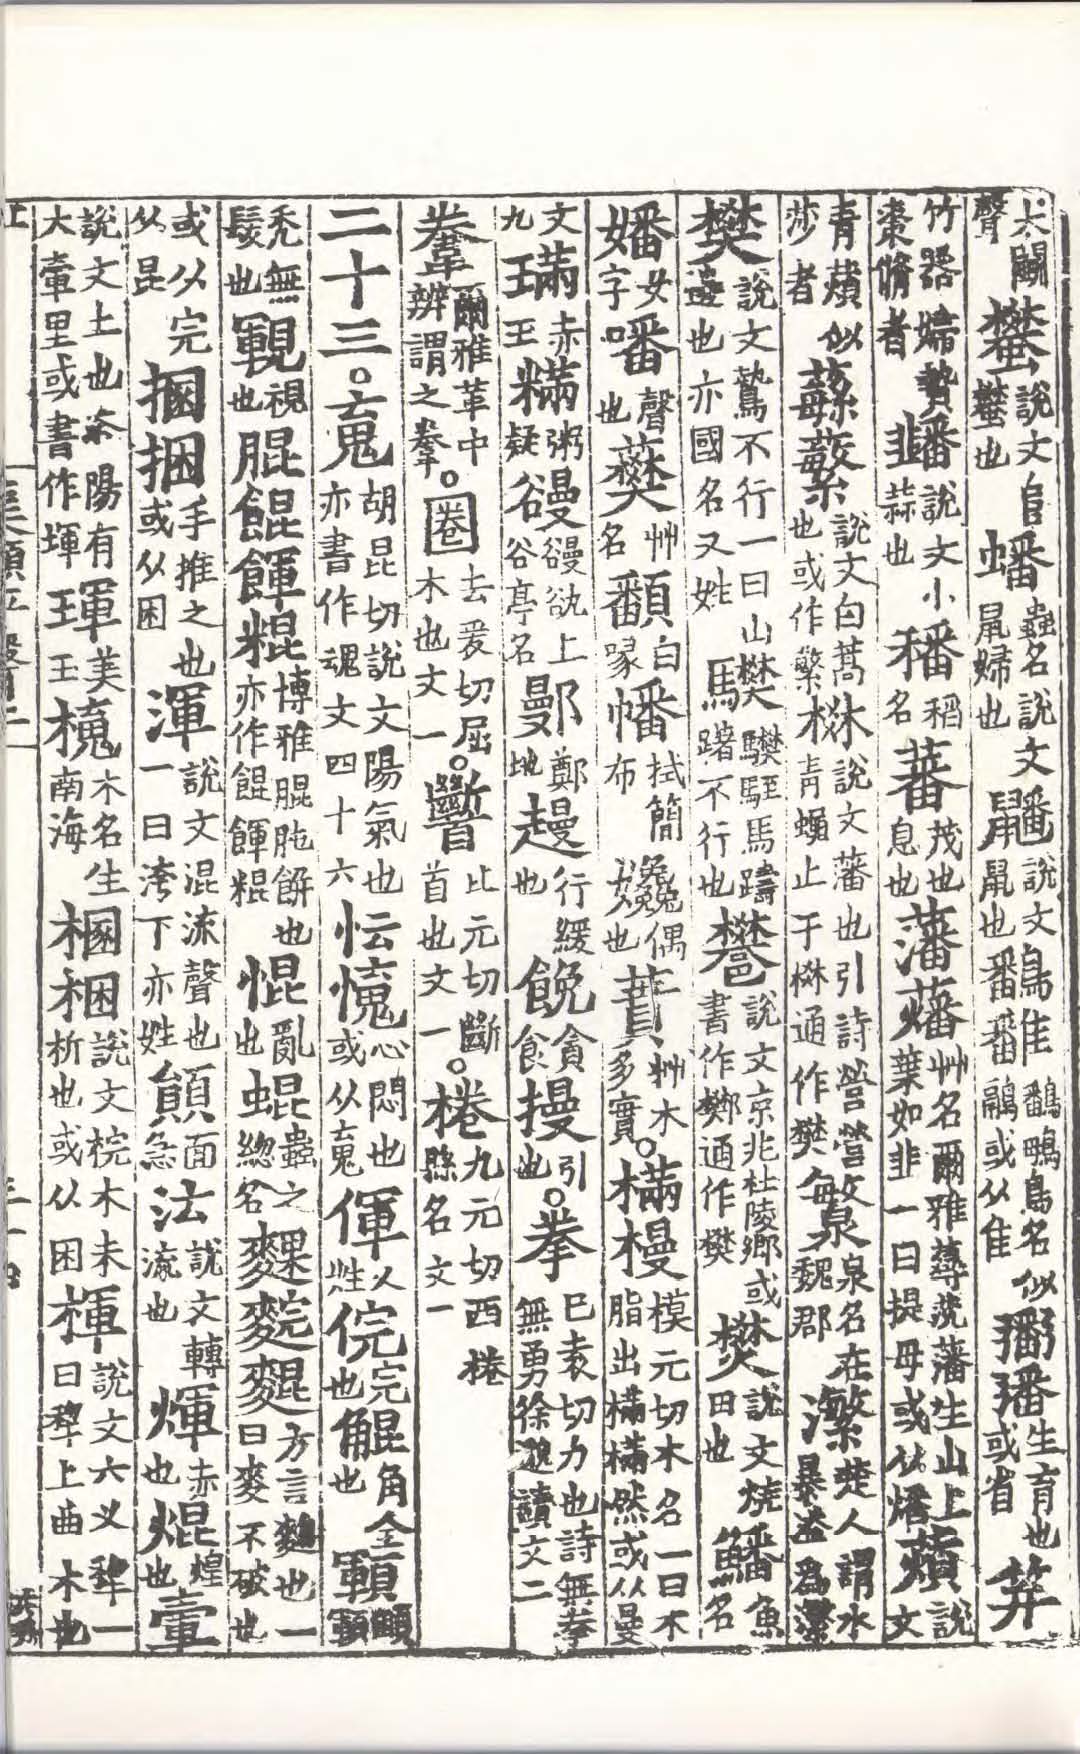 犬鬬聲蠜說文𨸏蠜也蟠蟲名說文鼠婦也鼶說文鼠也番番鷭或从隹鷭鴫鳥名似𤳖璠生育也或省笲
竹器婦贄棗脩者䪛說文小蒜也䆺稻名蕃茂也息也藩䕰艸名爾雅蕁莐藩生山上葉如韭一曰提母或从燔薠說文
青薠似莎者蘩蘩說文白蒿也或作繁棥說文藩也引詩營營青蠅止于棥通作樊䋣泉泉名在魏郡瀿楚人謂水暴溢爲瀿
樊說文鷙不行一曰山樊邊也亦國名又姓驓驙馬躊躇不行也䣊說文京兆杜陵鄉或書作鄤通作樊燓說文燒田也鱕魚名
嬏女字噃聲也蘩艸名䫶白貌幡拭簡布㝃偶也蕡艸木多實樠槾模元切木名一曰木脂出樠樠然或从曼
文九璊赤玉䊡粥凝谷曼谷欲上谷亭名鄤鄭地趧行緩也䬧貪食摱引也拳巳袁切力也詩無拳無勇徐邈讀文二
韏爾雅革中辨謂之韏圈去爰切屈木也文一䜝比元切斷首也文一棬九元切西棬縣名文一
二十三䰟胡昆切說文陽氣也亦書作魂文四十六忶㥵心悶也或从䰟㑮人姓俒完也䚠角全也顐顐
禿無髮也䡣視也腽餛餫䊐博雅腽肫餠也亦作餛餫粷惛亂也蜫蟲之總名䴹䴷䵪方言麴也一曰麥不破也
或从完从昆㨡捆手推之也或从困渾說文混流聲也一曰洿下亦姓顚面急法說文轉流也煇赤也焜煌也㡓
說文土也洛陽有大㡓里或書作㟦琿美玉槐木名生南海梱梱說文梡木未析也或从困楎說文六乂犂一曰犂上曲木也